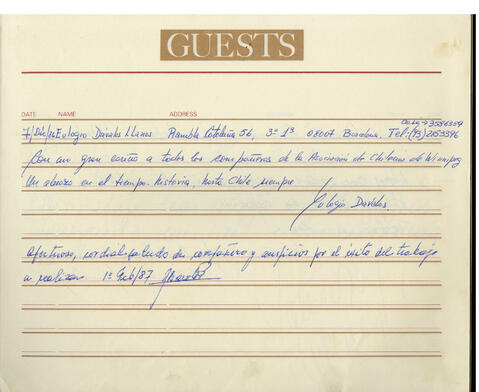 GUESTS
DATE NAME ADDRESS
Casa → 3586359
7/Dic/86 Eulogio Dávalos Llanos Rambla Cataluña 56, 3º 1ª 08007 Barcelona. Tel: (93) 2153396
Con un gran cariño a todos los compañeros de la Asociación de Chilenos de Winnipeg
Un abrazo en el tiempo. historia, hasta Chile siempre
Eulogio Davalos.
Afectuoso, cordial saludo de compañero y auspicios por el éxito del trabajo
a realizar. 1º Feb/87